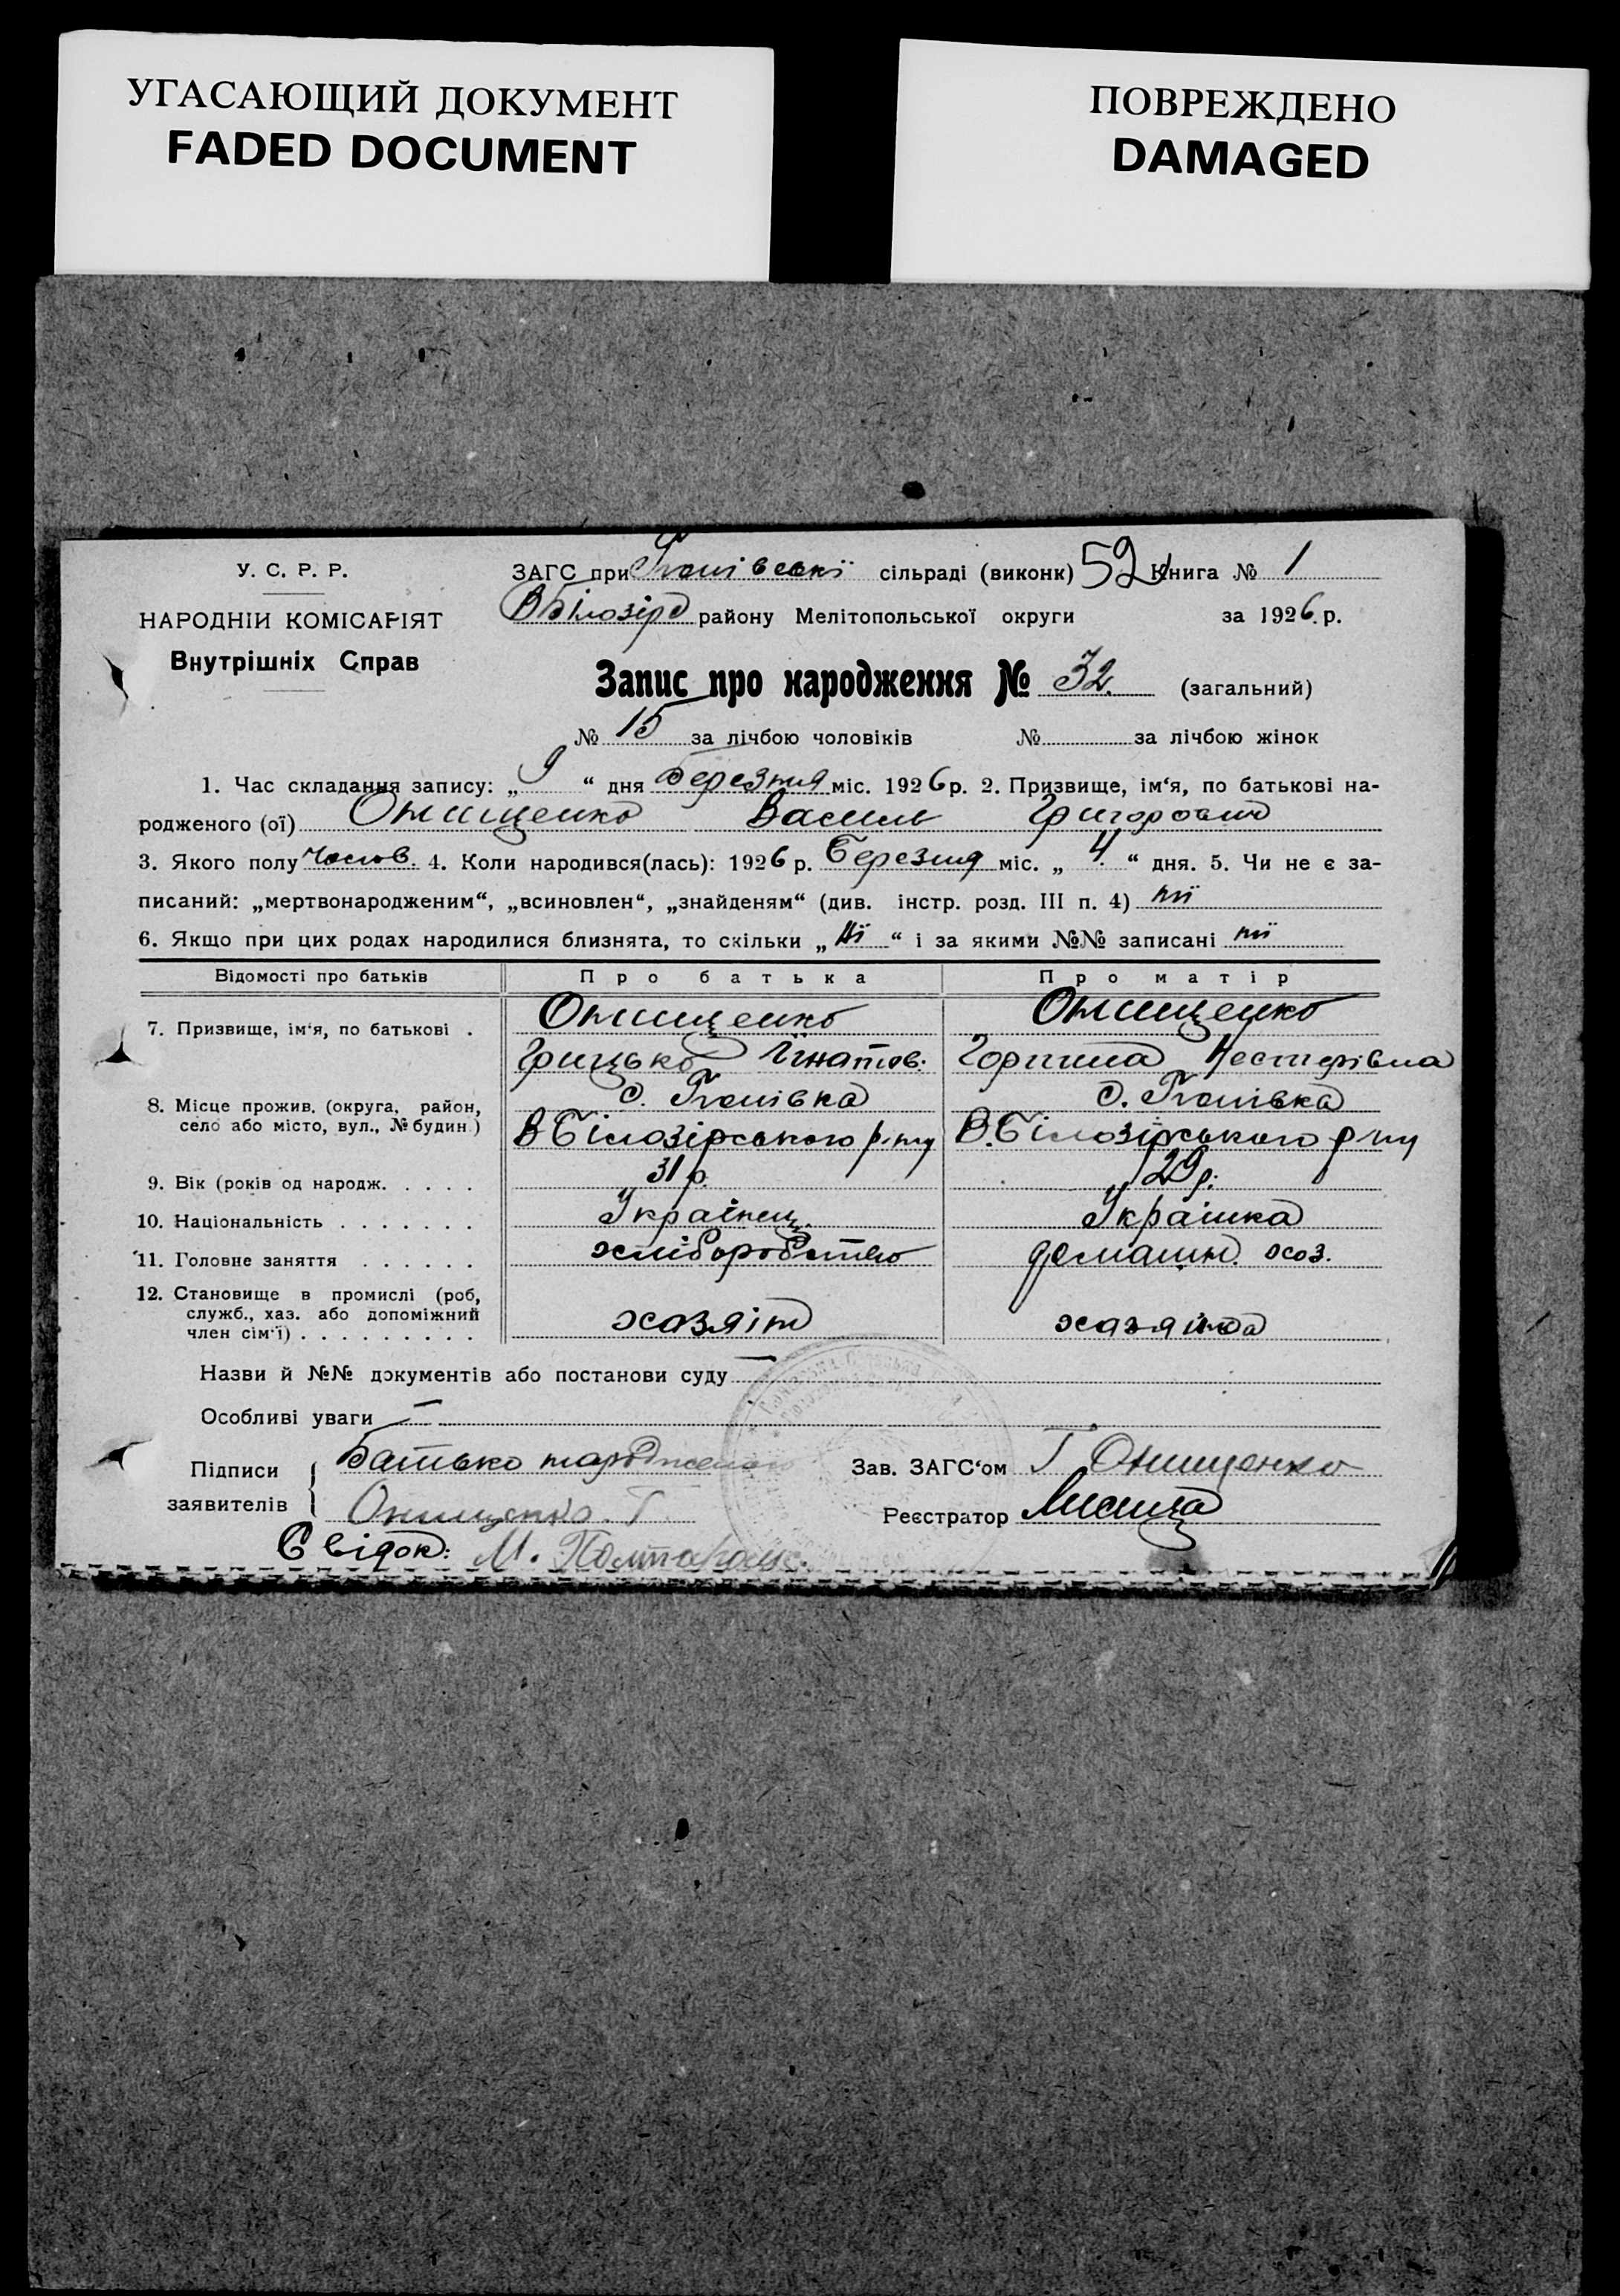 УГАСАЮЩИЙ ДОКУМЕНТ
FADED DOCUMENT
ПОВРЕЖДЕНО
DAMAGED
У. С. Р. Р.
НАРОДНІЙ КОМІСАРІЯТ
Внутрішніх Справ
ЗАГС при сільраді (виконк) 52 Книга № 1
В Білозірс району Мелітопольської округи за 1926 р.
Запис про народження № 32. (загальний)
№ 15 за лічбою чоловіків № за лічбою жінок
1. Час складання запису: „ 9 “ дня березня міс. 1926 р. 2. Призвище, ім‘я, по батькові на-
родженого (ої) Онищенко Василь Григорович
3. Якого полу чолов. 4. Коли народився(лась): 1926 р. Березня міс. „ 4 “ дня. 5. Чи не є за-
писаний: „мертвонародженим“, „всиновлен“, „знайденям“ (див. інстр. розд. III п. 4) ні
6. Якщо при цих родах народилися близнята, то скільки „ Ні “ і за якими №№ записані ні
Відомості про батьків Про батька Про матір
7. Призвище, ім‘я, по батькові . Онищенко Онищенко
Грицько Ігнатов: Горпина Нестерівна
8. Місце прожив. (округа, район, село або місто, вул., № будин.) с. с.
В Білозірського р-ну В. Білозірського р-ну
9. Вік (років од народж. . . . . 31 р. 29 р.
10. Національність . . . . . . . Українец. Українка
11. Головне заняття . . . . . . хліборобство домашн. хоз.
12. Становище в промислі (роб,
служб., хаз. або допоміжний
член сім‘ї) . . . . . . . . . хазяїн хазяйка
Назви й №№ документів або постанови суду —
Особливі уваги —
Підписи заявителів Батько народженого Зав. ЗАГС‘ом Г Онищенко
Онищенко. Г Реєстратор Лисиця
Свідок: М.